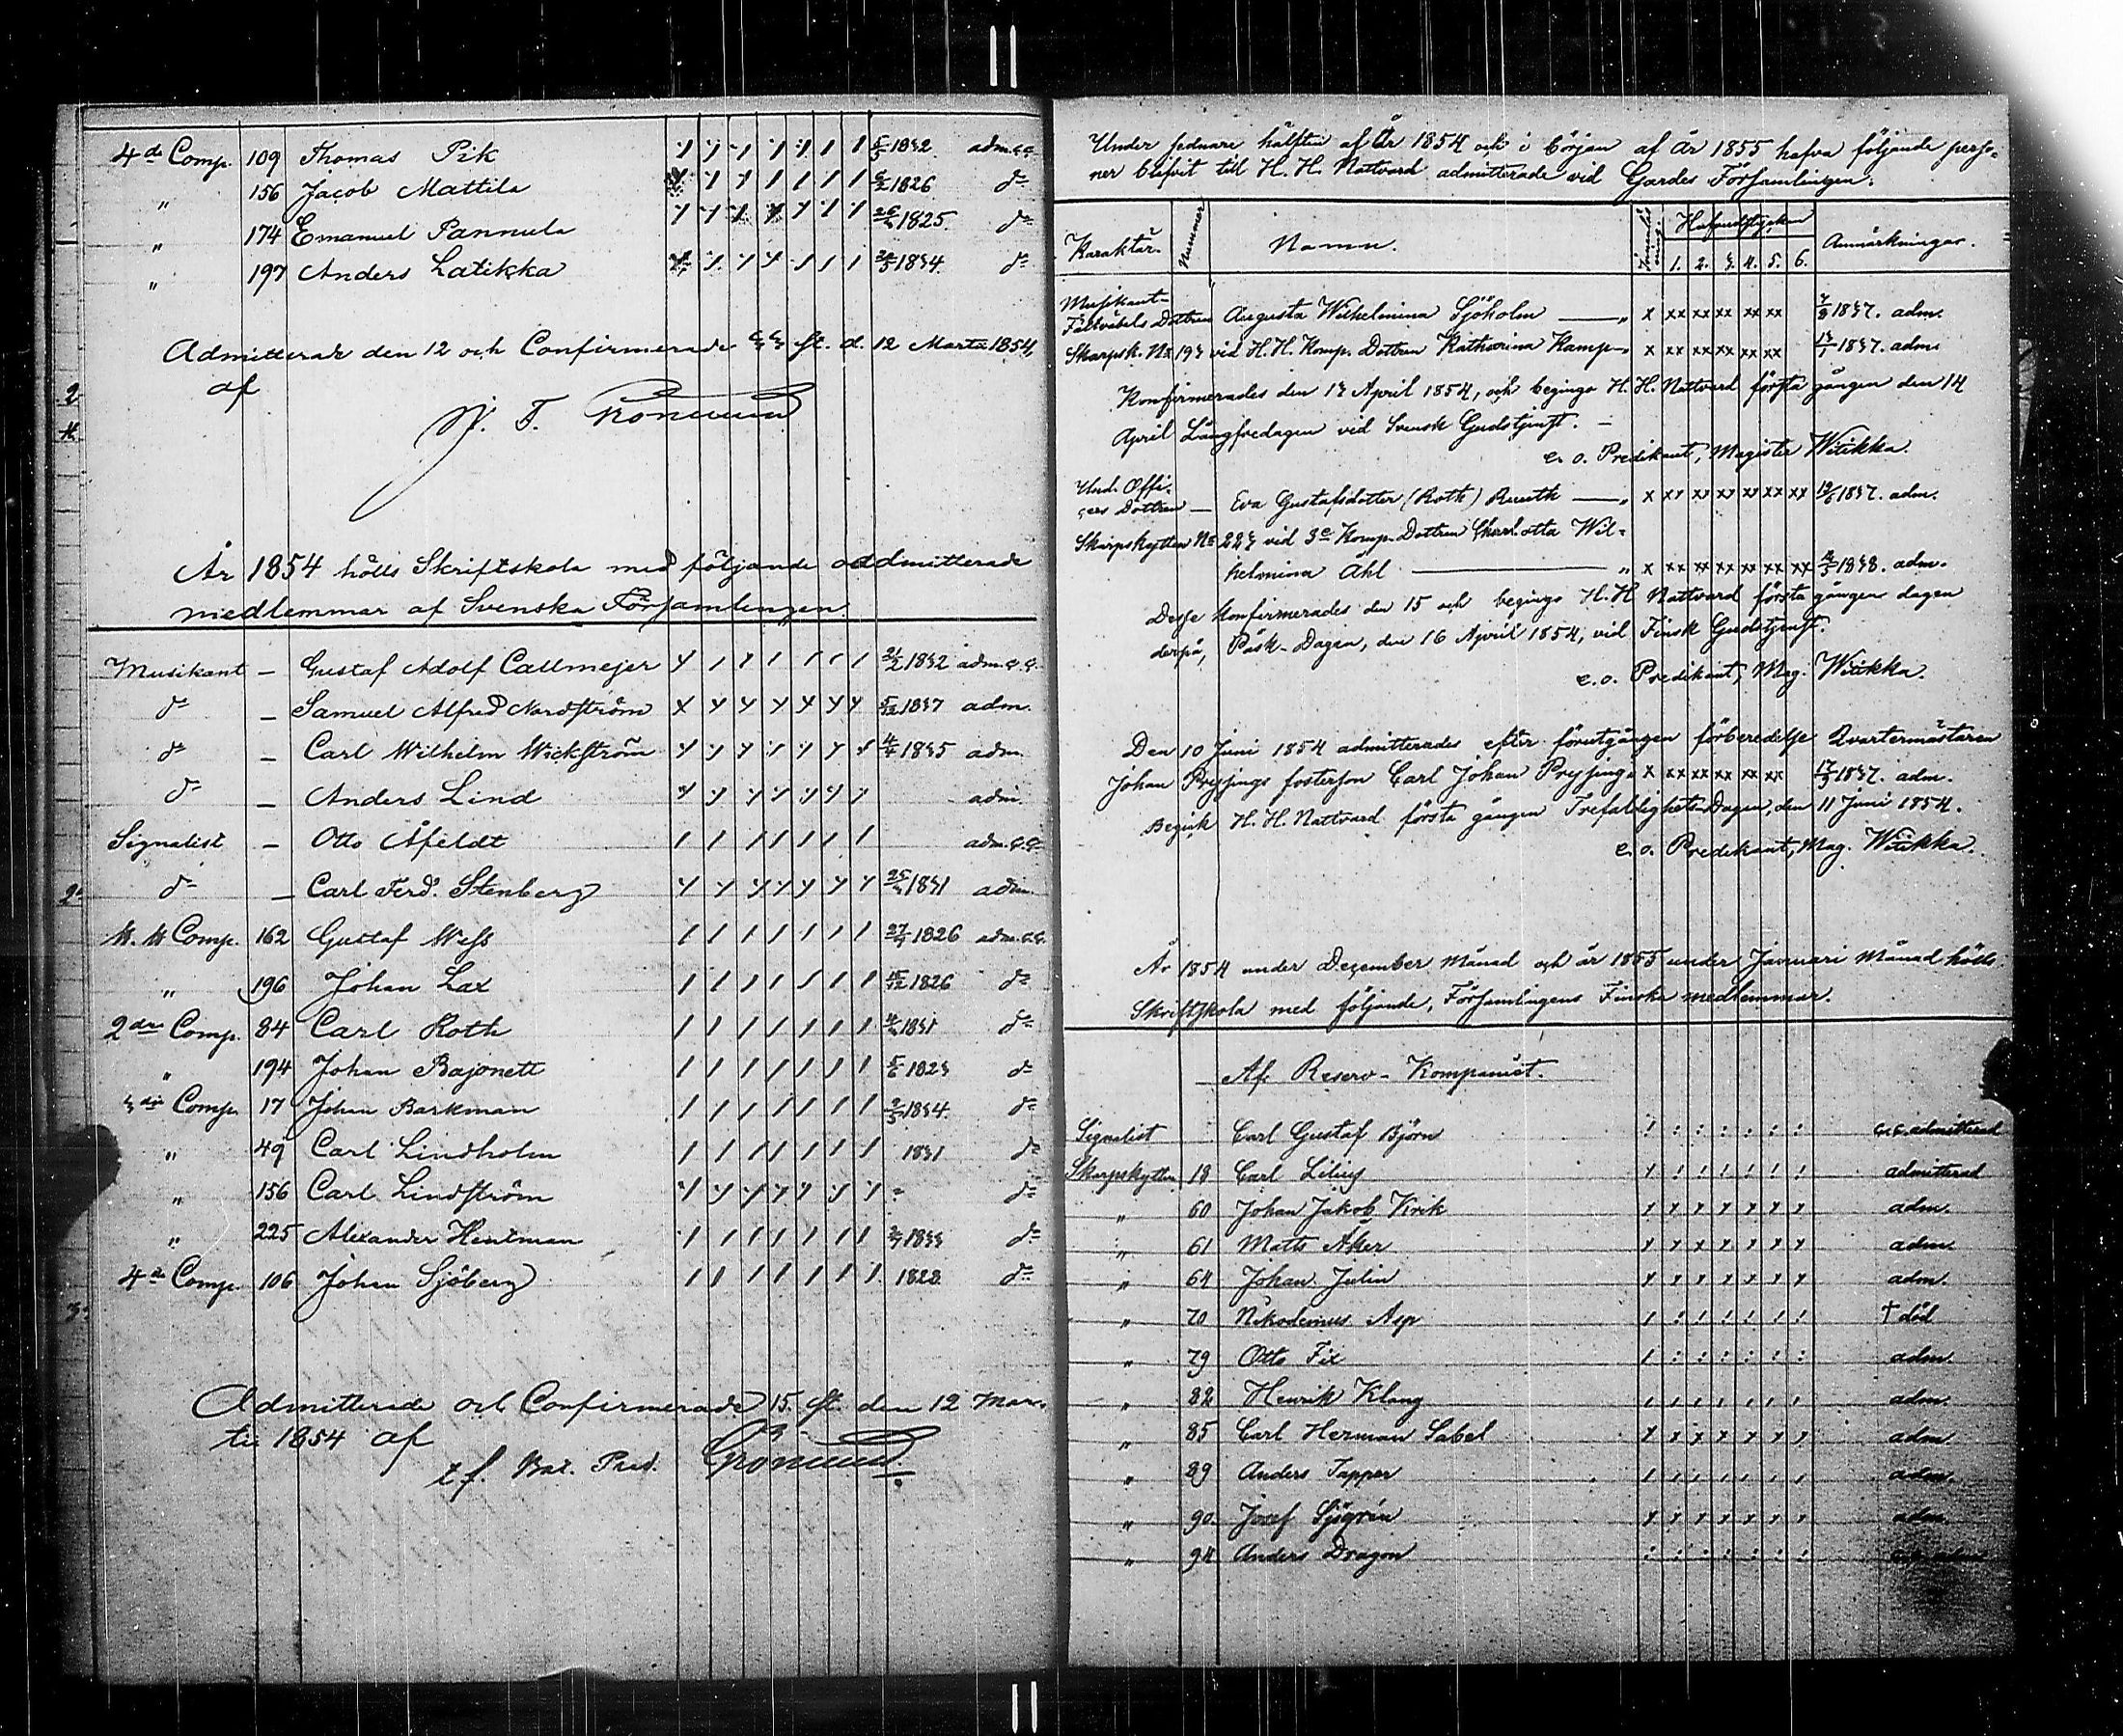 4de Comp. 109 Thomas Pik 5/5 1832 adm.c.c.
" 156 Jacob Mattila 6/2 1826 do
" 174 Emanuel Pannula 1825. do
" 197 Anders Latikka 1834. do
Admitterade den 12 och Confirmerade 33 st. d. 12 Martii 1854,
af
År 1854 hölls Skriftskola med följande oadmitterade
medlemmar af Svenska Församlingen.
Musikant – Gustaf Adolf Callmejer 21/2 1832 adm.c.c.
do – Samuel Alfred Nordström 5/12 1837 adm.
do – Carl Wilhelm Wickström 4/4 1835 adm.
do – Anders Lind adm.
Signalist – Otto Åfeldt adm.c.c.
do – Carl Ferd. Stenberg 1831 adm.
Comp. 162 Gustaf Wess 1826 adm.c.c.
" 196 Johan Lax 1826 do
2dra Comp. 84 Carl Roth 1831 do
" 194 Johan Bajonett 5/6 1823 do
3dje Comp. 17 Johan Barkman 2/5 1834. do
" 49 Carl Lindholm 1831 do
" 156 Carl Lindström – do
" 225 Alexander Hentman 1833 do
4de Comp. 106 Johan Sjöberg 1828 do
Admitterade och Confirmerade 15 st. den 12 Mar-
tii 1854 af
t.f. Bat. Pred. Grönlund
Under sednare hälften af År 1854 och i början af år 1855 hafva följande perso-
ner blifvit till H. H. Nattvard admitterade vid Gardes Församlingen.
Karaktär. Nummer Namn. Innanläsning. Hufvudstycken Anmärkningar.
1. 2. 3. 4. 5. 6.
Musikant-
Fältväbels Dottren Augusta Wilhelmina Sjöholm — " x xx xx xx xx xx 1837. adm.
Skarpsk. No 193 vid H.H. Komp. Dottren Katharina Kamp " x xx xx xx xx xx 13/1 1837. adm.
Konfirmerades den 13 April 1854, och begingo H. H. Nattvard första gången den 14
April Långfredagen vid Svensk Gudstjenst. –
e. o. Predikant, Magister Witikka.
Und. Offi-
cers Dottren — Eva Gustafsdotter (Roth) Ruuth — " x xx xx xx xx xx xx 19/6 1837. adm.
Skarpskytten No 223 vid 3e Komp. Dottren Charlotta Wil-
helmina Åhl — " x xx xx xx xx xx xx 1838. adm.
Desse konfirmerades den 15 och begingo H. H Nattvard första gången dagen
derpå, Påsk-Dagen, den 16 April 1854, vid Finsk Gudstjenst.
e. o. Predikant, Mag. Witikka.
Den 10 Juni 1854 admitterades efter förutgången förberedelse Qvartermästaren
Johan Pryssings fosterson Carl Johan Pryssing. x xx xx xx xx xx 17/3 1837. adm.
Begick H. H. Nattvard första gången Trefaldighets-Dagen, den 11 Juni 1854.
e. o. Predikant, Mag. Witikka.
År 1854 under December Månad och år 1855 under Januari Månad hölls
Skriftskola med följande, Församlingens Finska medlemmar.
Af Reserv-Kompaniet.
Signalist Carl Gustaf Björn c.c. admitterad
Skarpskytten 18 Carl Lilius admitterad
" 60 Johan Jakob Kvik adm.
" 61 Matts Åker adm.
" 64 Johan Julin adm.
" 70 Nikodemus Asp † död
" 79 Otto Fix adm.
" 82 Henrik Klang adm.
" 85 Carl Herman Sabel adm.
" 89 Anders Tapper adm.
" 90. Josef Sjögrén adm.
" 94 Anders Dragon